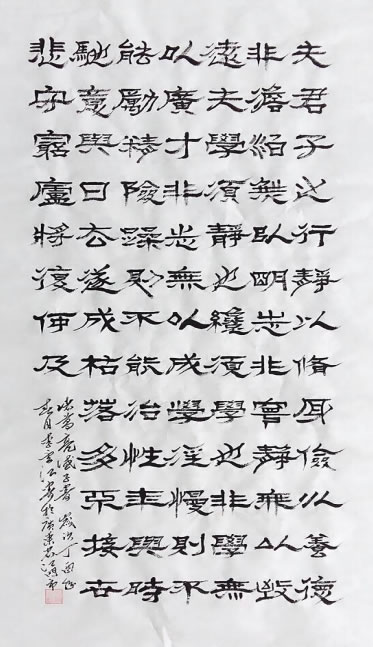 夫君子之行靜以脩身儉以養德
非澹泊無以明志非寧靜無以致
遠夫學須靜也纔須學也非學無
以廣才非志無以成學淫慢則不
能勵精險躁則不能治性年與時
馳意與日去遂成枯落多不接世
悲守窮廬將復何及
諸葛亮誡子書 歲次丁酉年
春月李